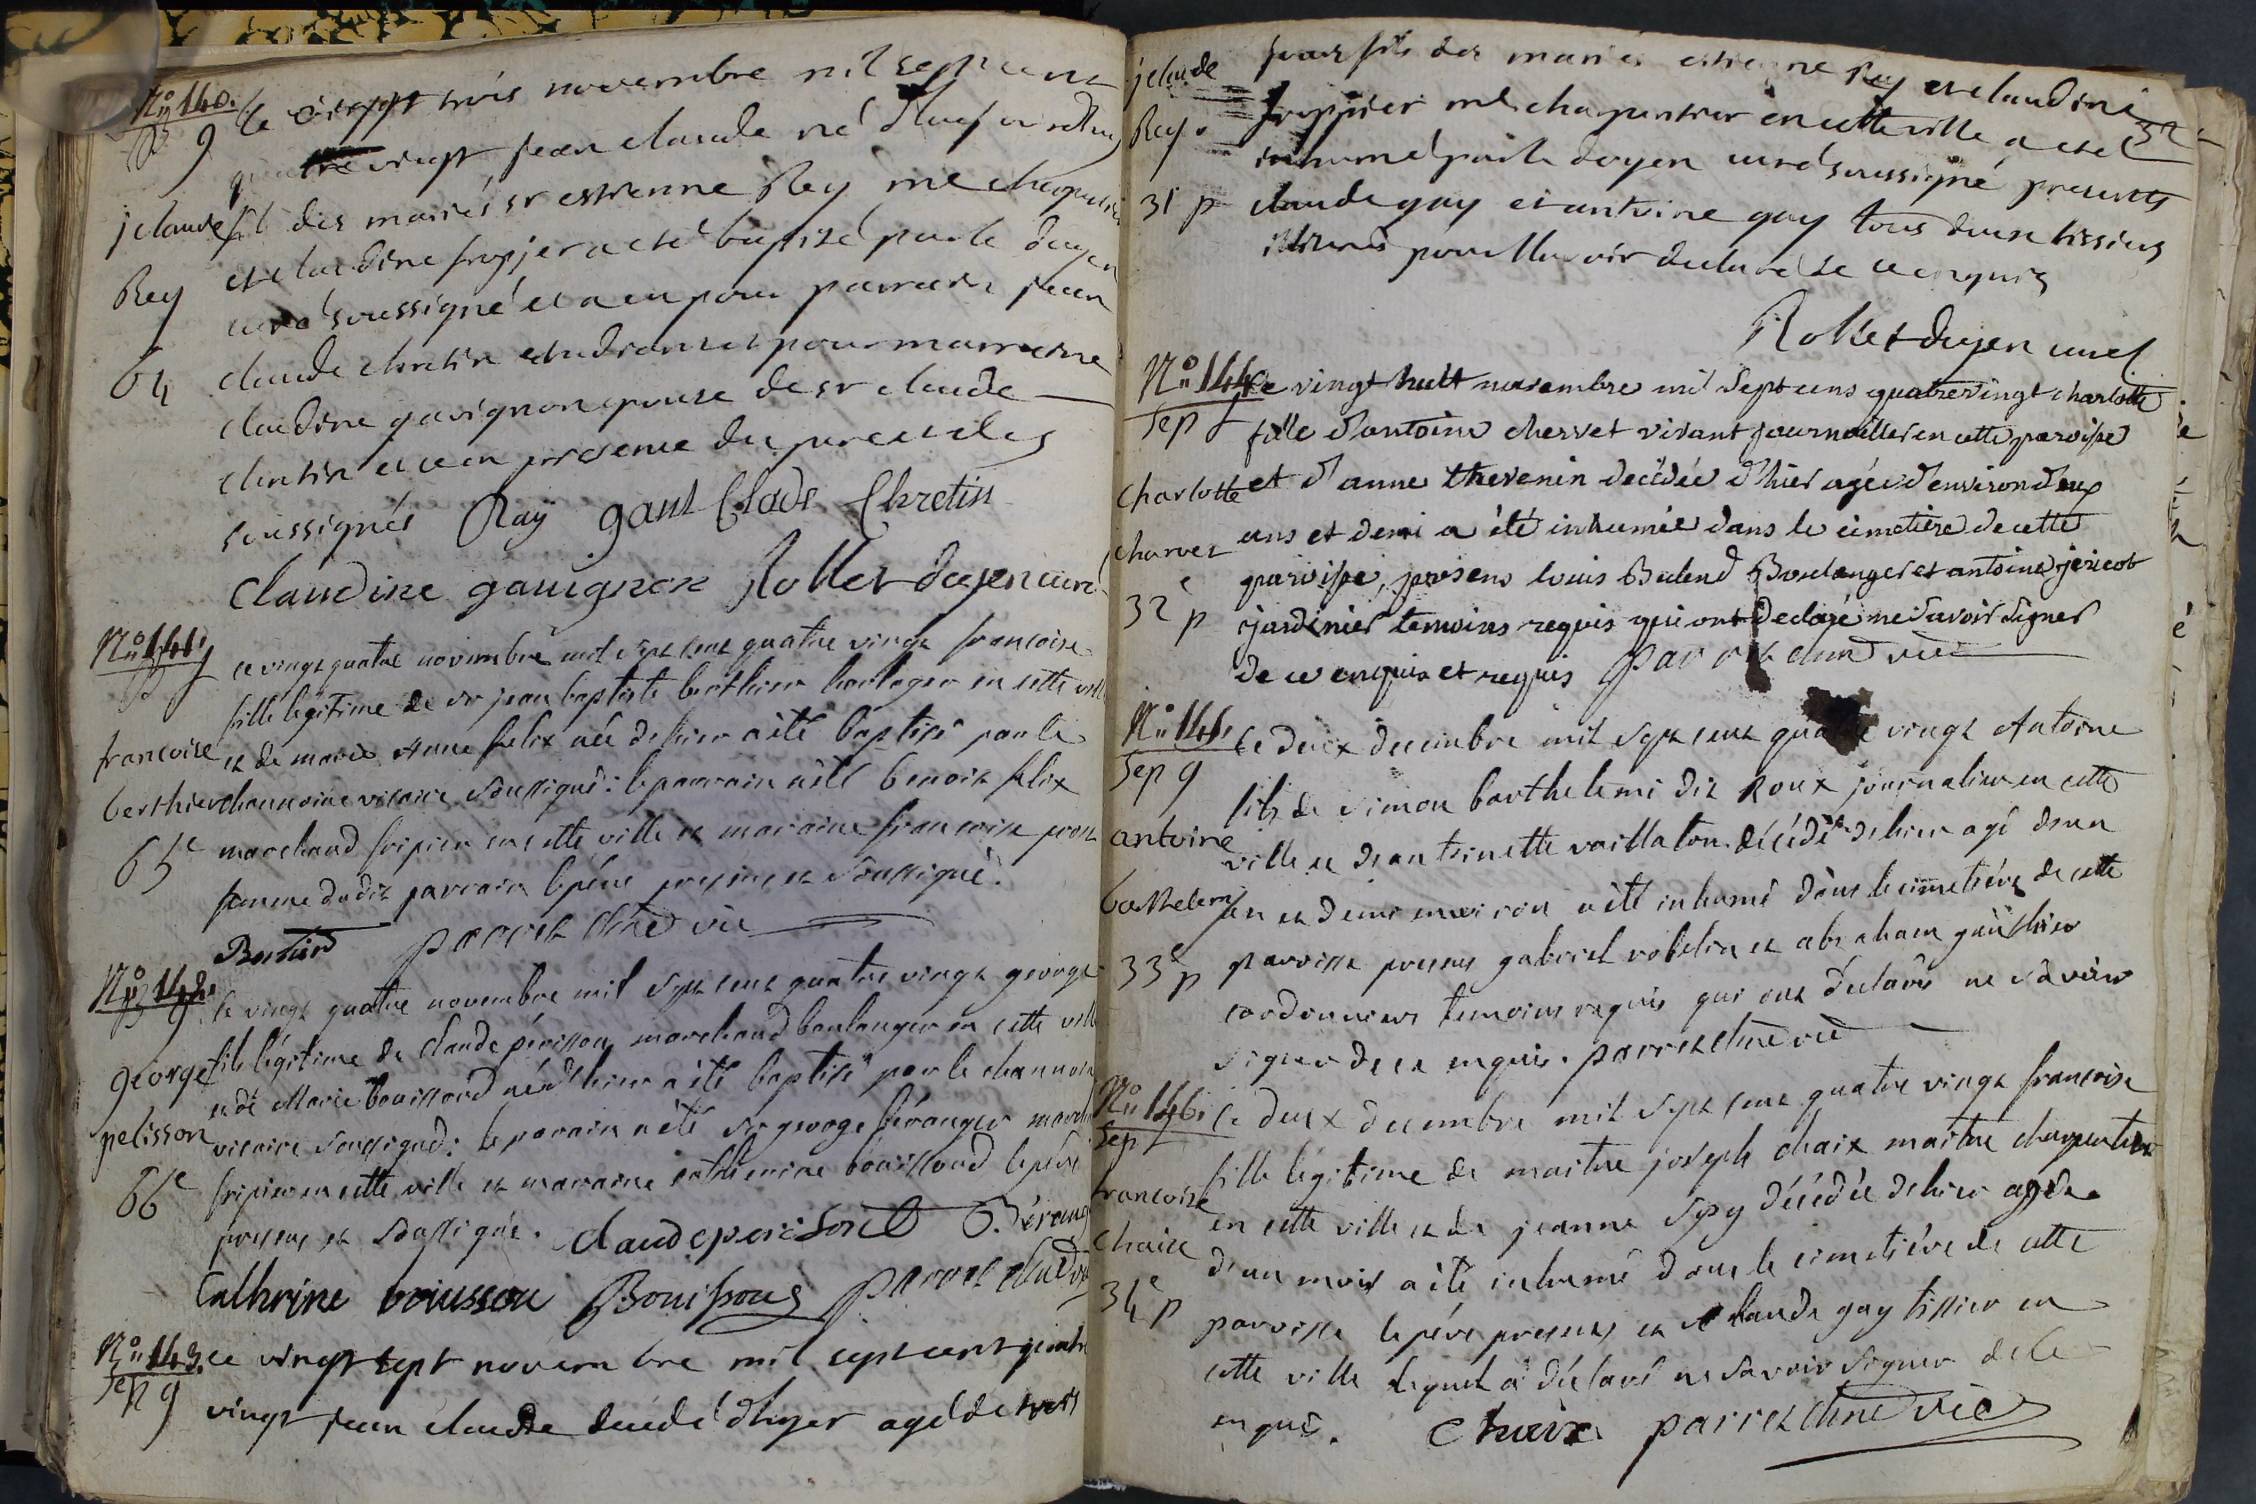 N° 140.
B 9
j claude
Rey
64
Le vingt trois novembre mil sept cent
quatre vingt jean claude né d'huy
fil des mariés sr estienne Rey me charpentier
et claudine frupier a eté baptizé par le doyen
curé soussigné et a eu pour parrain jean
claude chretin et pour marraine
claudine gavignon epouse de sr claude
chretin et ce en presence du pere et des
soussignés Ray gant Clade Chretin
Claudine gauignon Rollet doyen curé
N° 141.
B 9
francoise
berthier
65e
ce vingt quatre novembre mil sept cent quatre vingt francoise
fille legitime de sr jean baptiste berthier horloger en cette ville
et de marie Anne felix née de hier a été baptisé par le
channoine vicaire soussigné: le parrain a été benoit felix
marchand fripier en cette ville et maraine francoise
femme dudit parrain le père present et soussigné.
Bertier parret chne vic
N° 142.
B 9
george
pelisson
66e
le vingt quatre novembre mil sept cent quatre vingt george
fils légitime de claude périsson marchand boulanger en cette ville
et de Marie bouissoud né d'hier a été baptisé par le channoine
vicaire soussigné: le parain a été sr george béranger marchand
fripier en cette ville et maraine catherine bouissoud le père
present et soussigné. claude perisond G. Bérang
Cathrine boiussou Bouissoug parret chne vic
N° 143.
Sep 9
ce vingt sept novembre mil sept cent quatre
vingt jean claude décédé d'hyer agé de trois
j claude
Rey.
31 p
jours fils des mariés estienne Rey et claudine
fruppier me charpentier en cette ville a eté
inhumé par le doyen curé soussigné presents
claude gay et antoine gay tous deux tissiers
illiterés pour ne savoir declaré de ce enquis
Rollet doyen curé
32
N° 144.
Sep 9
charlotte
charvet
32e p
Le vingt huit novembre mil sept cens quatrevingt charlotte
fille d'antoine chervet vivant journallier en cette paroisse
et d'anne thevenin decédée d'hier agée d'environ deux
ans et demi a été inhumée dans le cimetière de cette
paroisse, presens louis Bulend Boulanger et antoine jericot
jardinier temoins requis qui ont declaré ne savoir signer
de ce enquis et requis parret chne vic
N° 145.
Sep 9
antoine
barthelemi
33e p
Le deux decembre mil sept cent quatre vingt Antoine
fils de simon barthelemi dit Roux journalier en cette
ville et d'antoinette vaillaton décédé dehier agé d'un
an et demi environ a été inhumé dans le cimetière de cette
paroisse presens gabriel robelin et abraham gauthier
cordonniers temoins requis qui ont déclaré ne sàvoir
signer de ce enquis. parret chne vic
N° 146.
Sep 9
francoise
chaix
34e p
Le deux decembre mil sept cent quatre vingt françoise
fille légitime de maitre joseph chaix maitre charpentier
en cette ville et de jeanne décédée dehier agée
d'un mois a été inhumé dans le cimetière de cette
paroisse le père present et claude gay tissier en
cette ville lequel a déclaré ne savoir signer de ce
enquis. Chaix parret chne vic